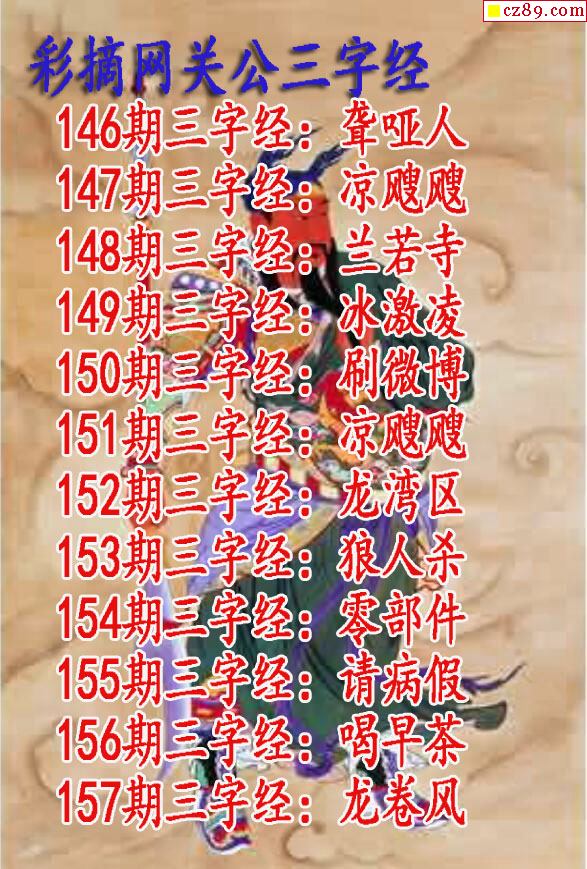 cz89.com
彩摘网关公三字经
146期三字经：聋哑人
147期三字经：凉飕飕
148期三字经：兰若寺
149期三字经：冰激凌
150期三字经：刷微博
151期三字经：凉飕飕
152期三字经：龙湾区
153期三字经：狼人杀
154期三字经：零部件
155期三字经：请病假
156期三字经：喝早茶
157期三字经：龙卷风